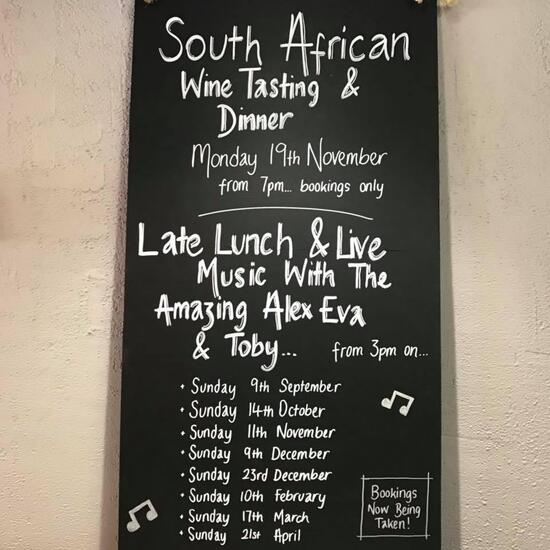 South African
Wine Tasting &
Dinner
Monday 19th November
from 7pm... bookings only
Late Lunch & Live
Music With The
Amazing Alex Eva
& Toby... from 3pm on...
• Sunday 9th September
• Sunday 14th October
• Sunday 11th November
• Sunday 9th December
• Sunday 23rd December
• Sunday 10th February
• Sunday 17th March
• Sunday 21st April
Bookings
Now Being
Taken!